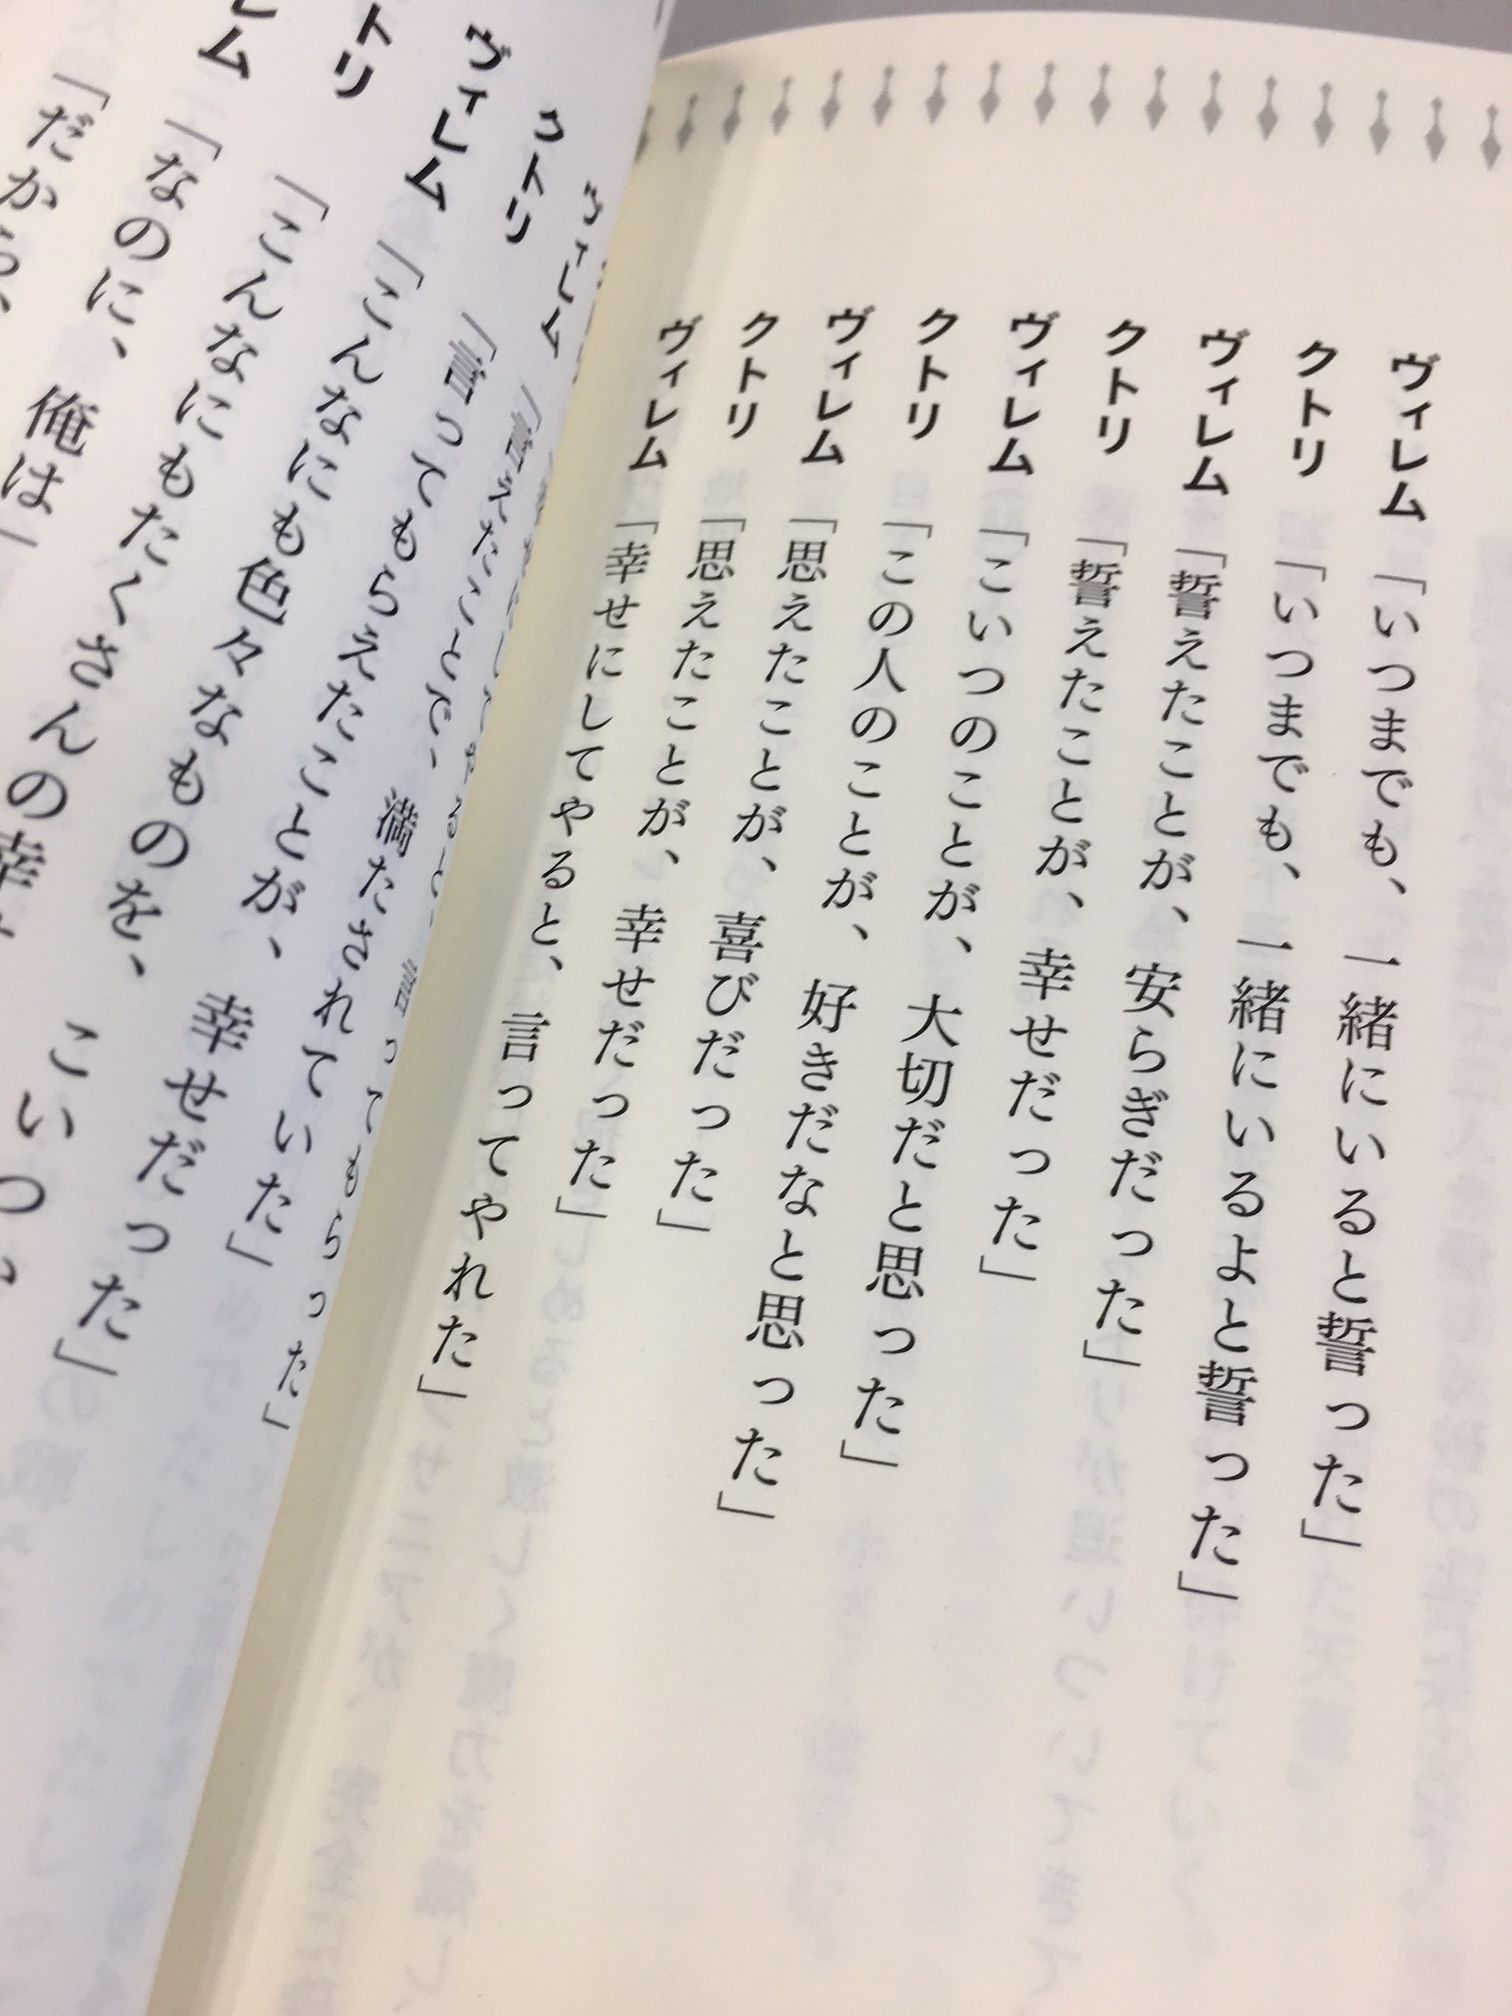 ヴィレム「いつまでも、一緒にいると誓った」
クトリ「いつまでも、一緒にいるよと誓った」
ヴィレム「誓えたことが、安らぎだった」
クトリ「誓えたことが、幸せだった」
ヴィレム「こいつのことが、大切だと思った」
クトリ「この人のことが、好きだなと思った」
ヴィレム「思えたことが、喜びだった」
クトリ「思えたことが、幸せだった」
ヴィレム「幸せにしてやると、言ってやれた」
言ってもらった」
ヴィレム「言えたことで、満たされていた」
クトリ「言ってもらえたことが、幸せだった」
ヴィレム「こんなにも色々なものを、
クトリ「こんなにもたくさんの幸
レム「なのに、俺は
「だから、こいつ、